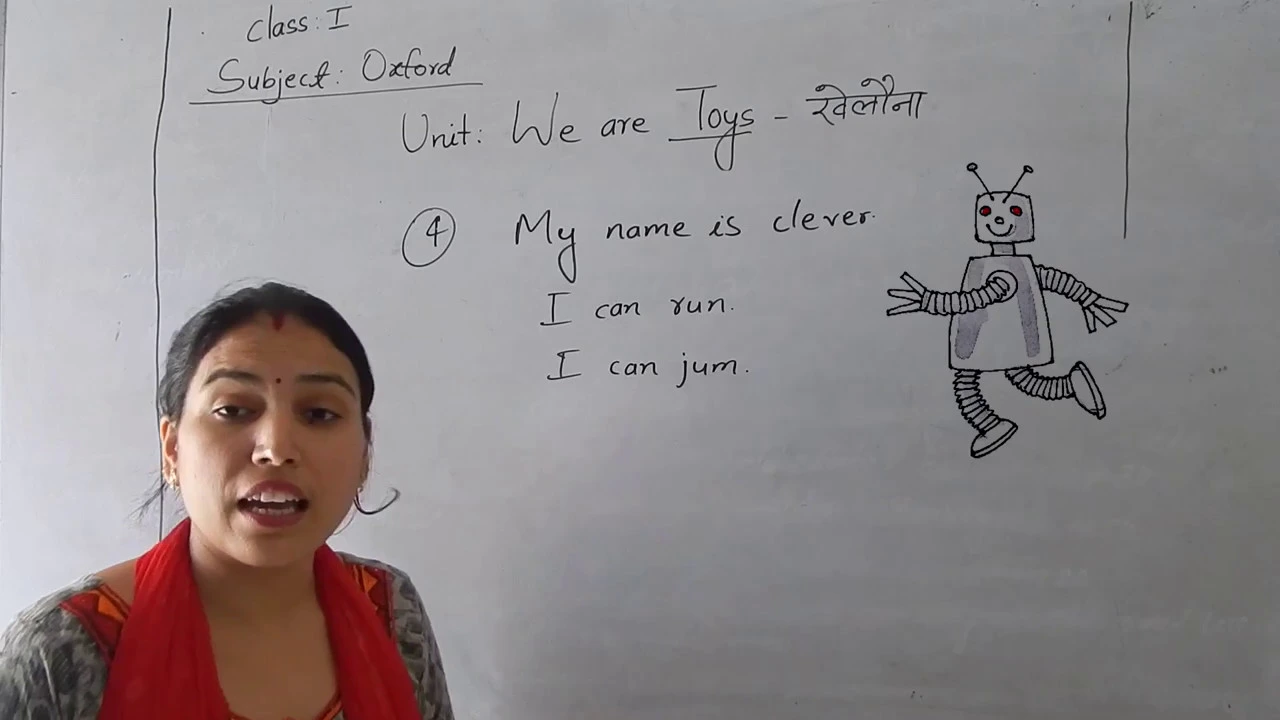 class: I
Subject: Oxford
Unit: We are Toys - खेलौना
④ My name is clever.
I can run.
I can jum.